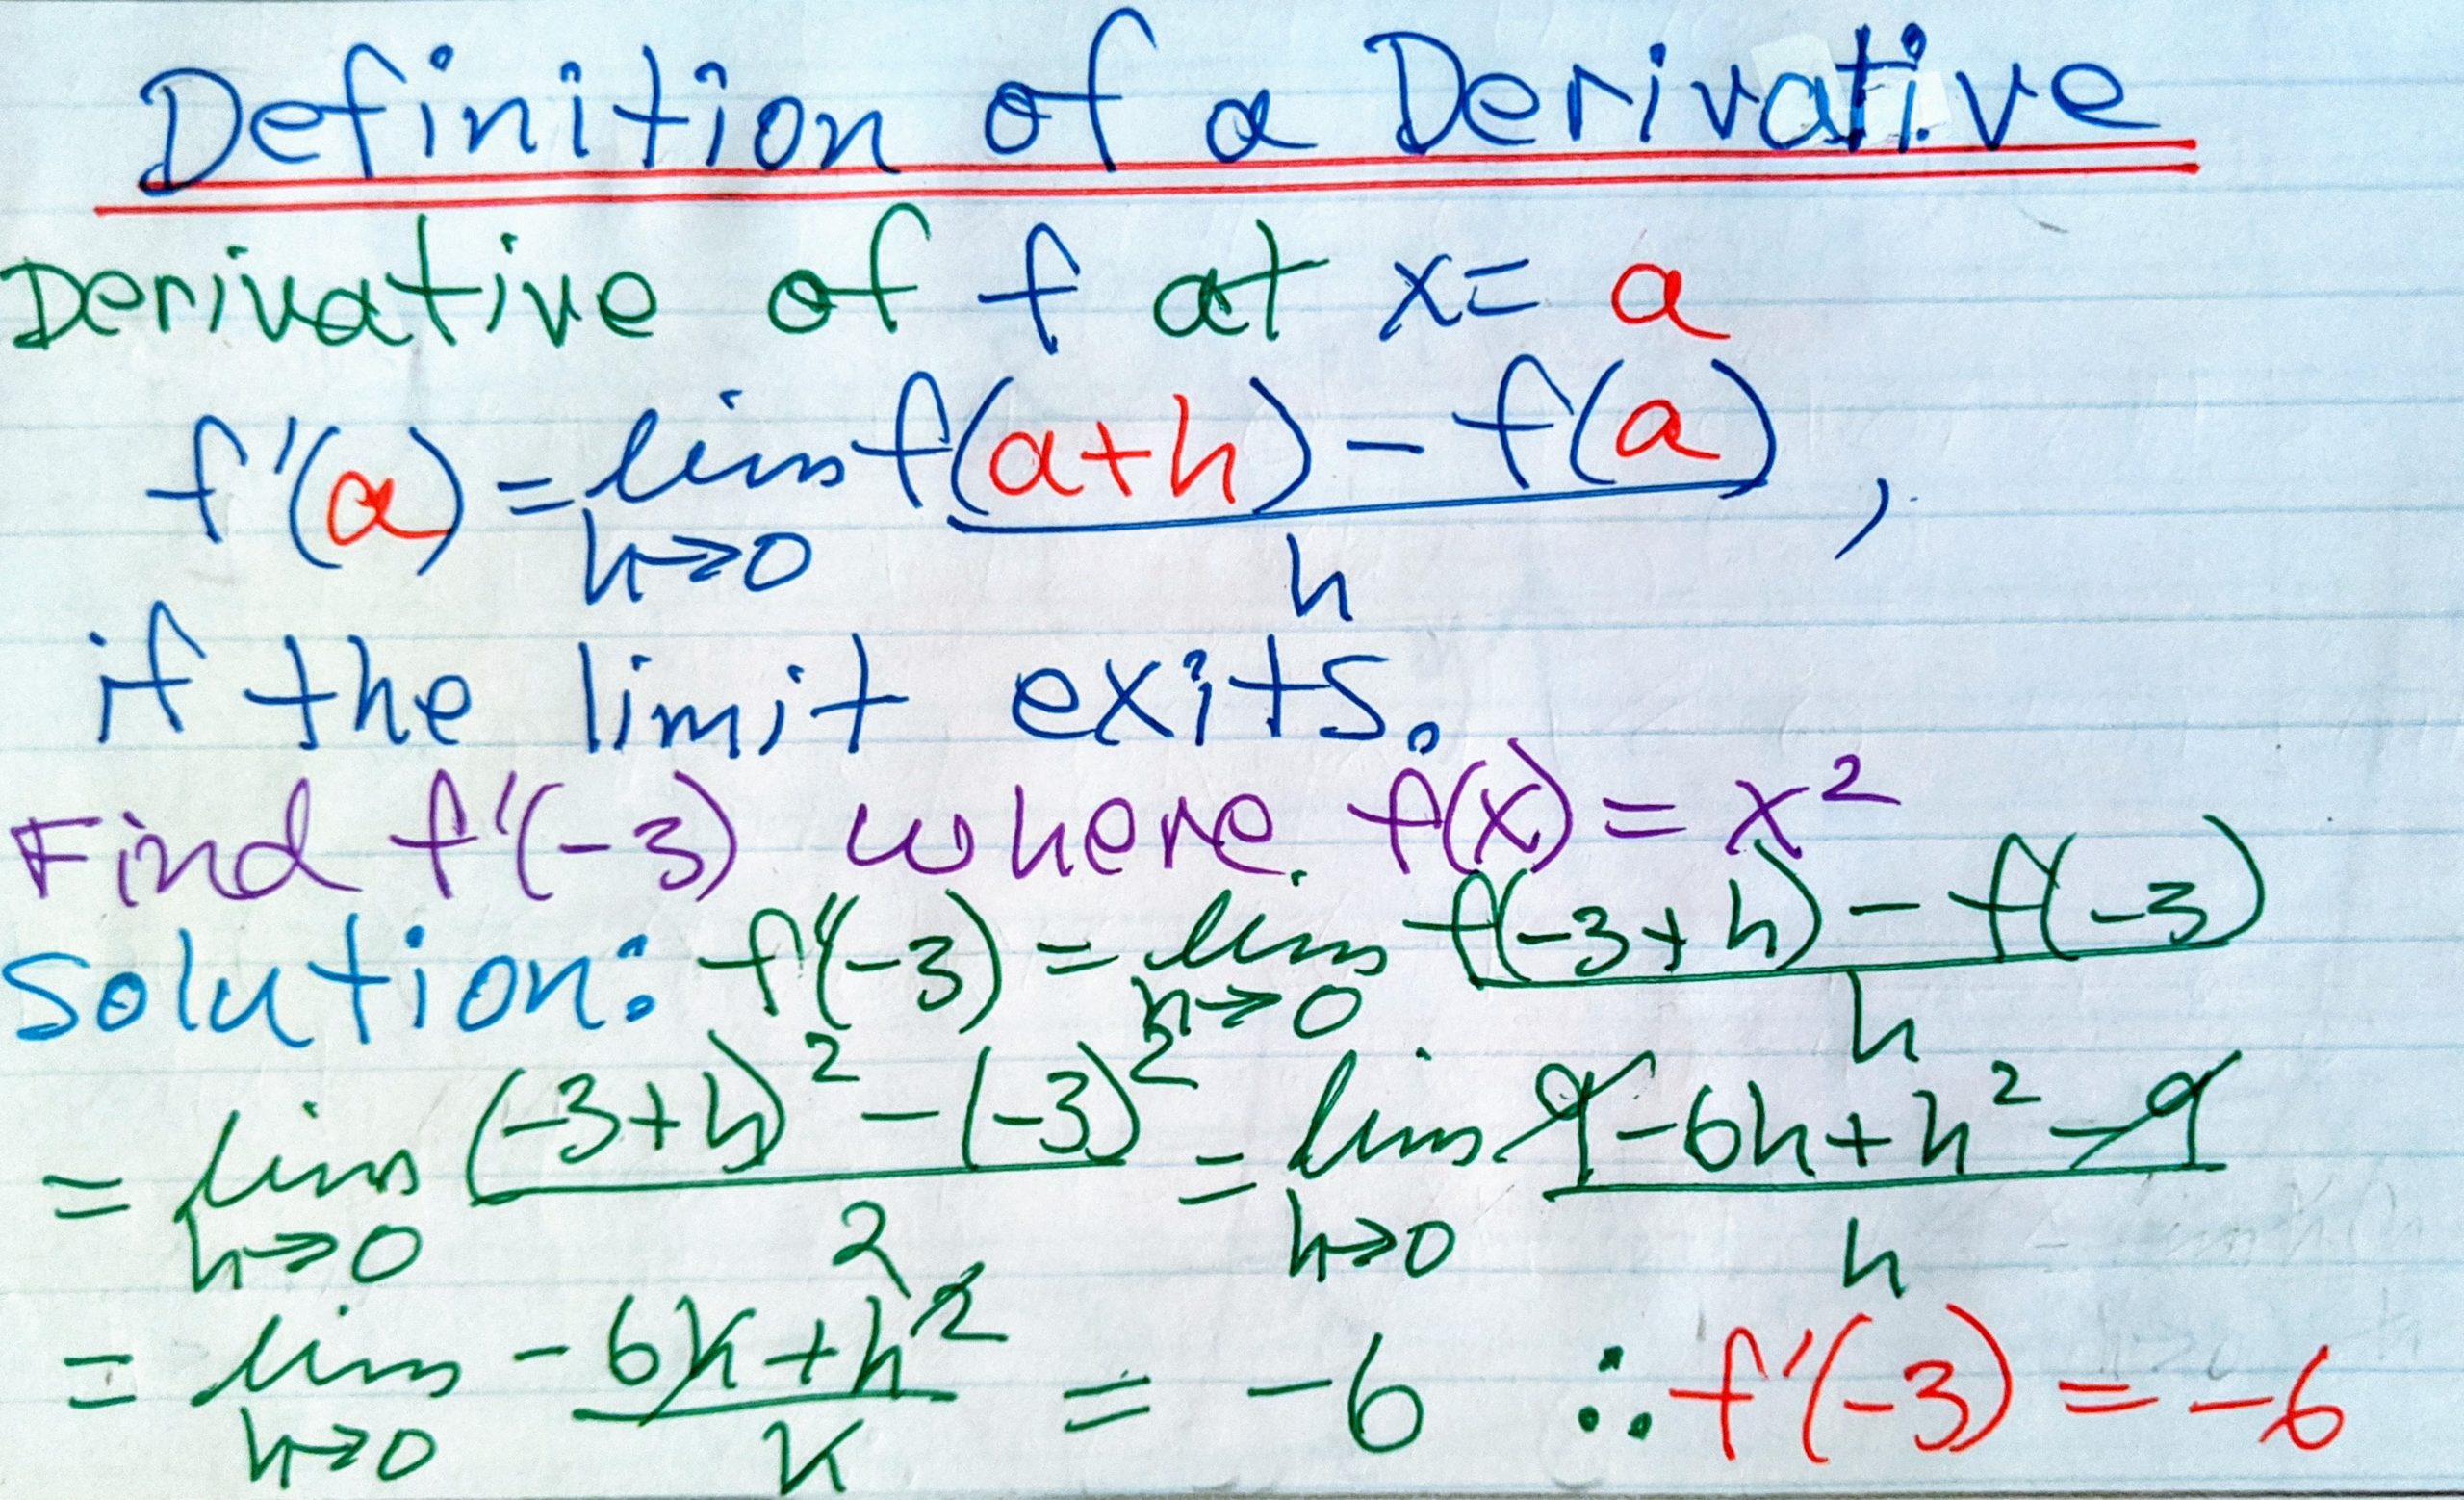 Definition of a Derivative
Derivative of f at x = a
f'(a) = lim h→0 f(a+h) - f(a) / h ,
if the limit exits.
Find f'(-3) where f(x) = x²
Solution: f'(-3) = lim h→0 f(-3+h) - f(-3) / h
= lim h→0 (-3+h)² - (-3)² / 2 = lim h→0 9 - 6h + h² - 9 / h
= lim h→0 -6h + h² / h = -6 ∴ f'(-3) = -6